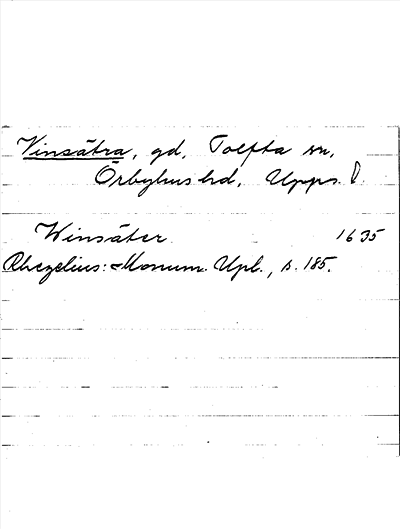 Vinsätra, gd, Tolfta sn,
Örbyhus hd, Upps. l.
Winsäter 1635
Rhezelius: Monum. Upl., s. 185.